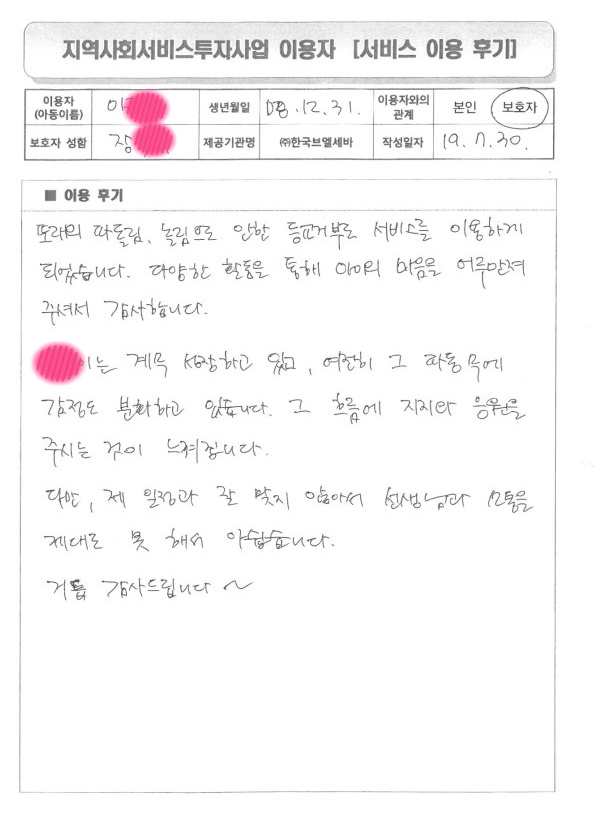 지역사회서비스투자사업 이용자 [서비스 이용 후기]
이용자 (아동이름) 이 생년월일 08.12.31. 이용자와의 관계 본인 보호자
보호자 성함 장 제공기관명 ㈜한국브엘세바 작성일자 19. 7. 30.
■ 이용 후기
또래의 따돌림, 놀림으로 인한 등교거부로 서비스를 이용하게
되었습니다. 다양한 활동을 통해 아이의 마음을 어루만져
주셔서 감사합니다.
이는 계속 성장하고 있고, 여전히 그 파동 속에
감정도 분화하고 있습니다. 그 흐름에 지지와 응원을
주시는 것이 느껴집니다.
다만, 제 일정과 잘 맞지 않아서 선생님과 소통을
제대로 못 해서 아쉽습니다.
거듭 감사드립니다 ~